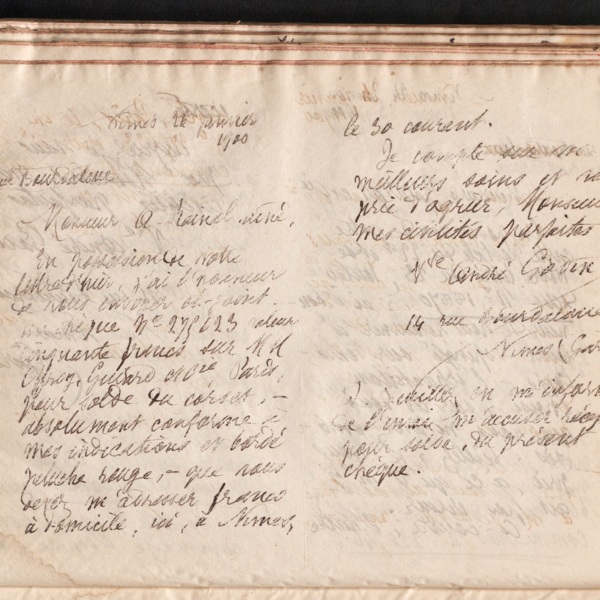 Nîmes 26 Janvier
1900
Bourdaloue
Monsieur A. aîné,
En possession de votre
lettre d'hier, j'ai l'honneur
de vous envoyer ci-joint
chèque No valeur
cinquante francs sur M M
& Cie Paris,
pour solde du corset, -
absolument conforme à
mes indications et bordé
peluche rouge, - que vous
devez m'adresser franco
à domicile, ici, à Nîmes,
le 30 courant.
Je compte sur
meilleurs soins et
prie d'agréer, Monsieur
mes civilités parfaites
Vve André
14 rue Bourdaloue
Nîmes (Gar
veuillez en m'inform
de l'envoi m'accuser
pour solde, du présent
chèque.